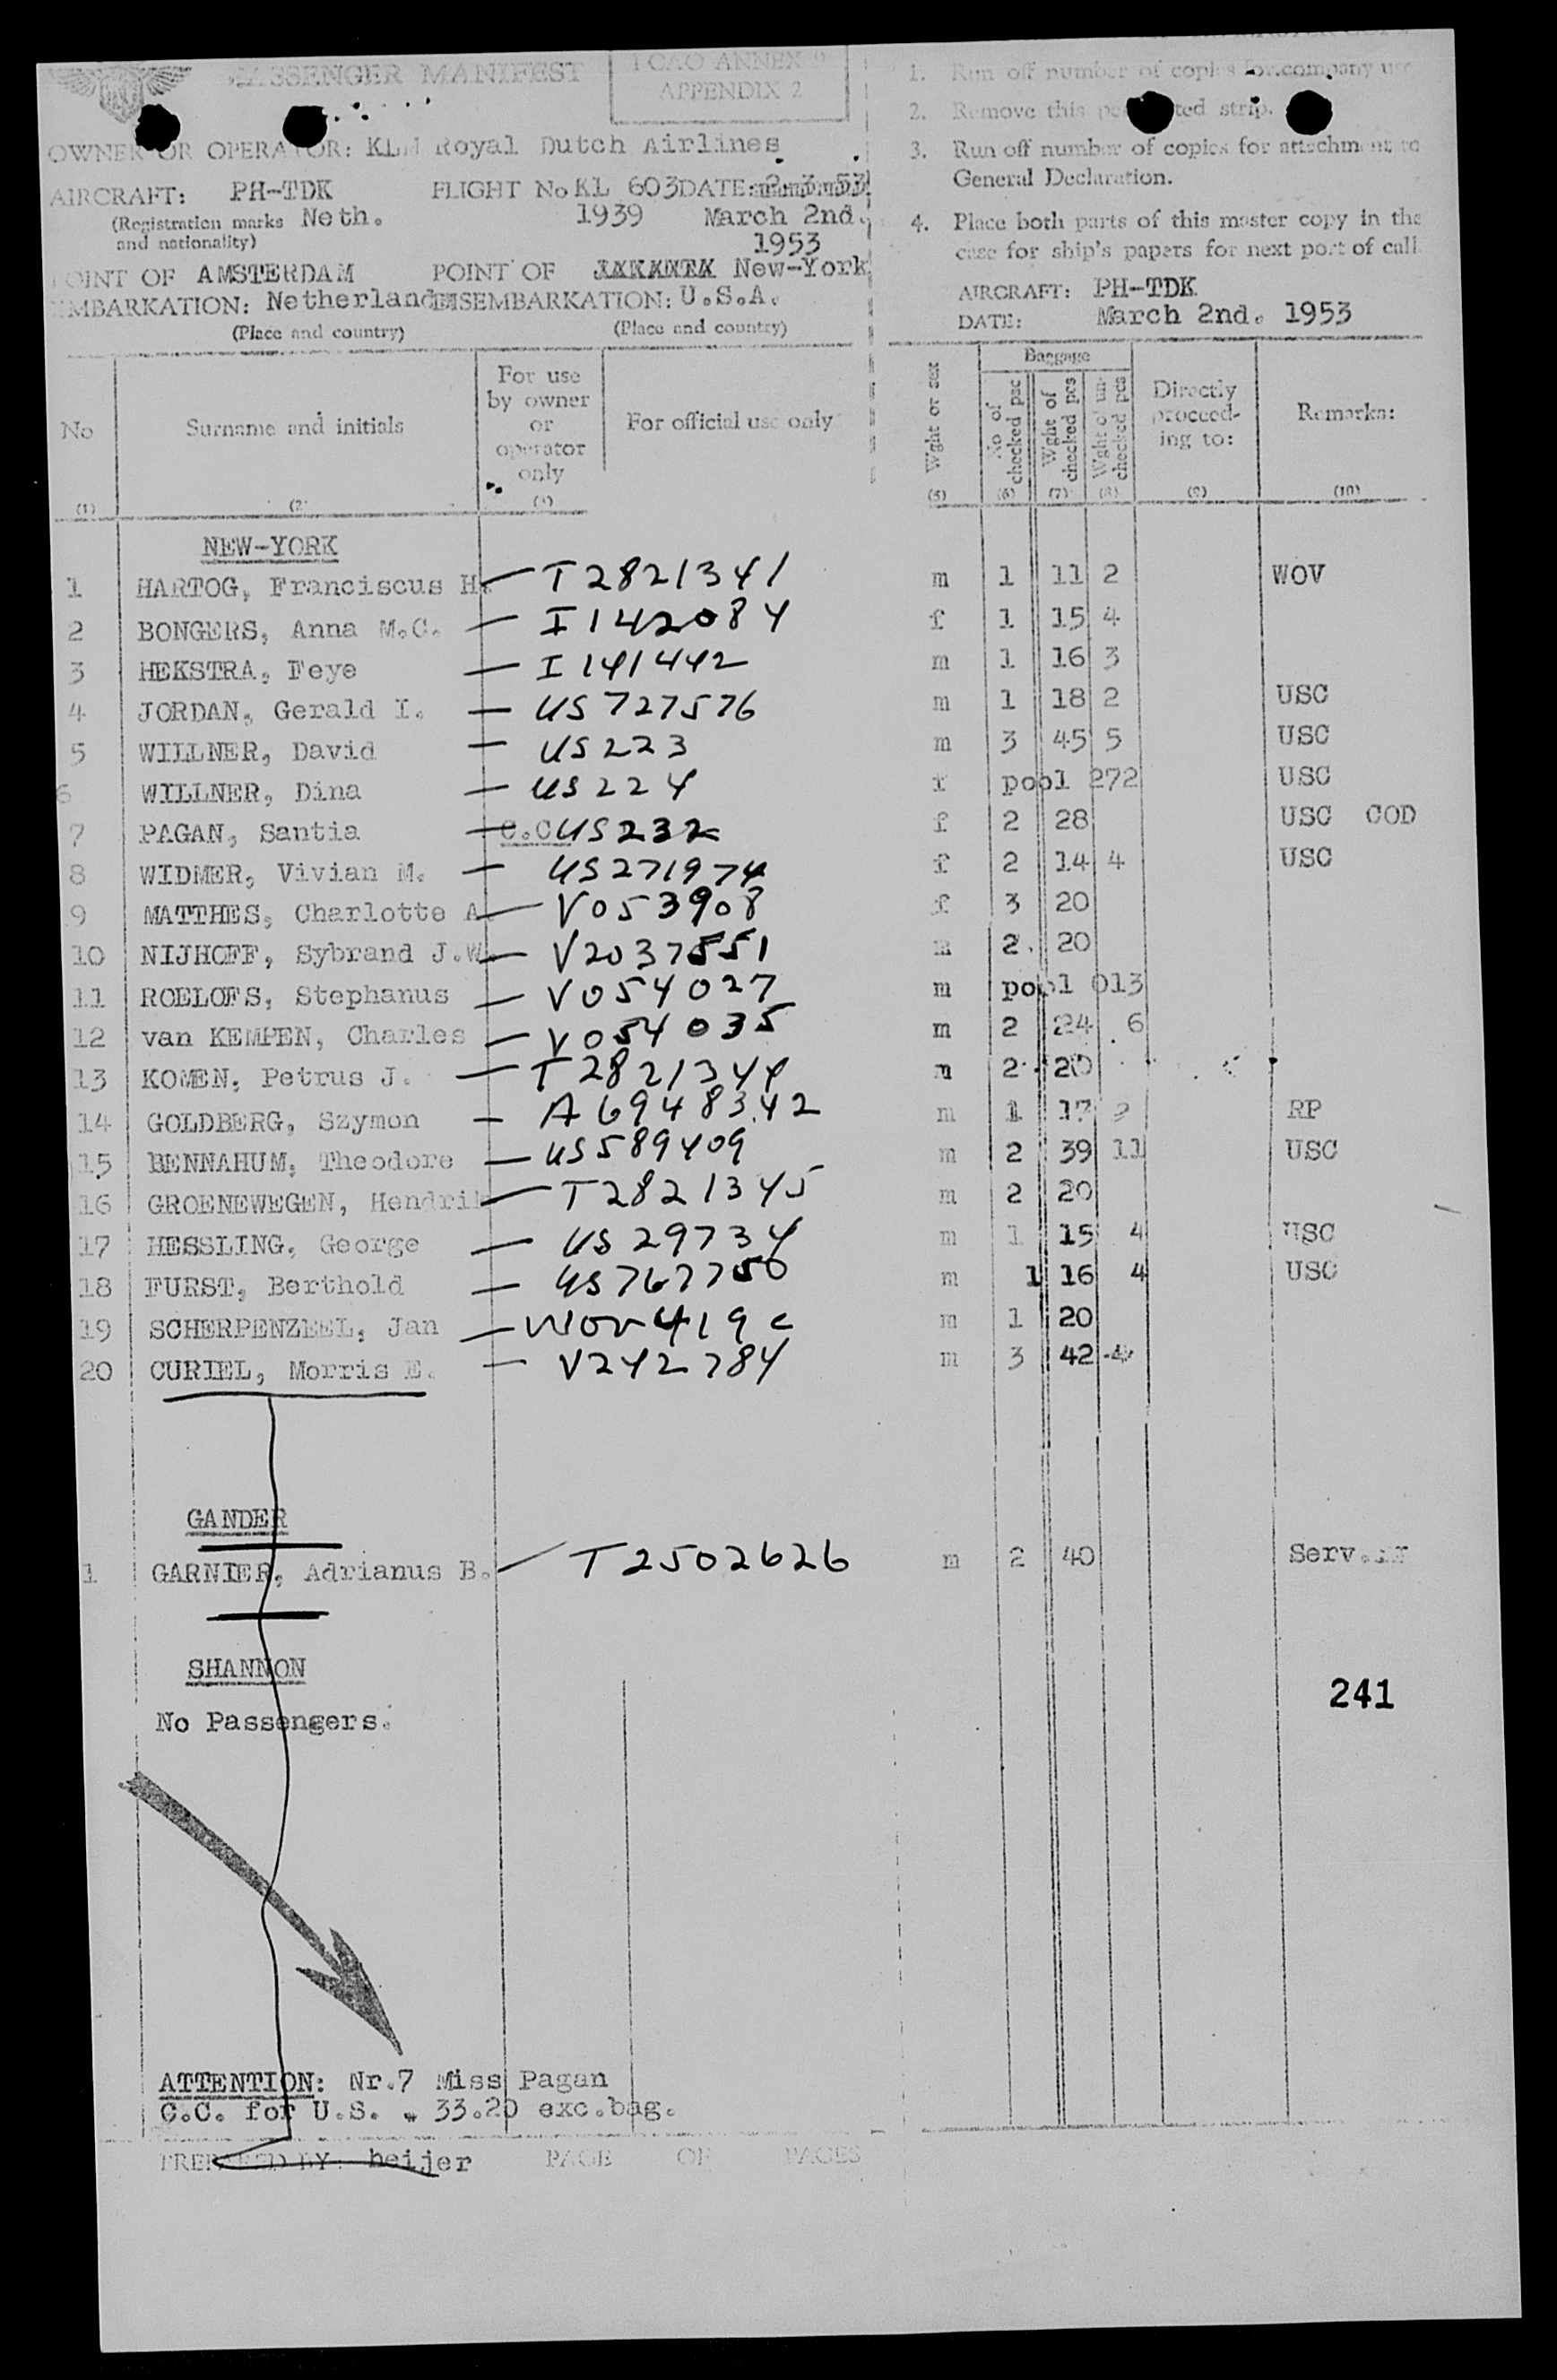 PASSENGER MANIFEST
ICAO ANNEX 9
APPENDIX 2
OWNER OR OPERATOR: KLM Royal Dutch Airlines
AIRCRAFT: PH-TDK FLIGHT No KL 603 DATE: 2.3.53
(Registration marks and nationality) Neth. 1939 March 2nd. 1953
POINT OF EMBARKATION: AMSTERDAM Netherlands POINT OF DISEMBARKATION: New-York U.S.A.
(Place and country) (Place and country)
1. Run off number of copies for company use
2. Remove this ted strip.
3. Run off number of copies for attachment to
General Declaration.
4. Place both parts of this master copy in the
case for ship's papers for next port of call.
AIRCRAFT: PH-TDK
DATE: March 2nd. 1953
No Surname and initials For use by owner or operator only For official use only Wght or sex Baggage No of checked psc Wght of checked pcs Wght of un-checked pcs Directly proceed-ing to: Remarks:
(1) (2) (5) (6) (7) (8) (9) (10)
NEW-YORK
1 HARTOG, Franciscus H. — T2821341 m 1 11 2 WOV
2 BONGERS, Anna M.C. — I142084 f 1 15 4
3 HEKSTRA, Feye — I141442 m 1 16 3
4 JORDAN, Gerald I. — US727576 m 1 18 2 USC
5 WILLNER, David — US223 m 3 45 5 USC
6 WILLNER, Dina — US224 f pool 272 USC
7 PAGAN, Santia — C.C US232 f 2 28 USC COD
8 WIDMER, Vivian M. — US271974 f 2 14 4 USC
9 MATTHES, Charlotte A. — V053908 f 3 20
10 NIJHOFF, Sybrand J.W. — V2037551 m 2. 20
11 ROELOFS, Stephanus — V054027 m pool 013
12 van KEMPEN, Charles — V054035 m 2 24 6
13 KOMEN, Petrus J. — T2821344 m 2 20
14 GOLDBERG, Szymon — A6948342 m 1 17 RP
15 BENNAHUM, Theodore — US589409 m 2 39 11 USC
16 GROENEWEGEN, Hendrik — T2821345 m 2 20
17 HESSLING, George — US29734 m 1 15 4 USC
18 FURST, Berthold — US767750 m 1 16 4 USC
19 SCHERPENZEEL, Jan — WOV419c m 1 20
20 CURIEL, Morris E. — V242784 m 3 42 4
GANDER
1 GARNIER, Adrianus B. — T2502626 m 2 40 Serv.
SHANNON
241
No Passengers.
ATTENTION: Nr.7 Miss Pagan
C.C. for U.S. 33.20 exc.bag.
PREPARED BY: heijer PAGE OF PAGES